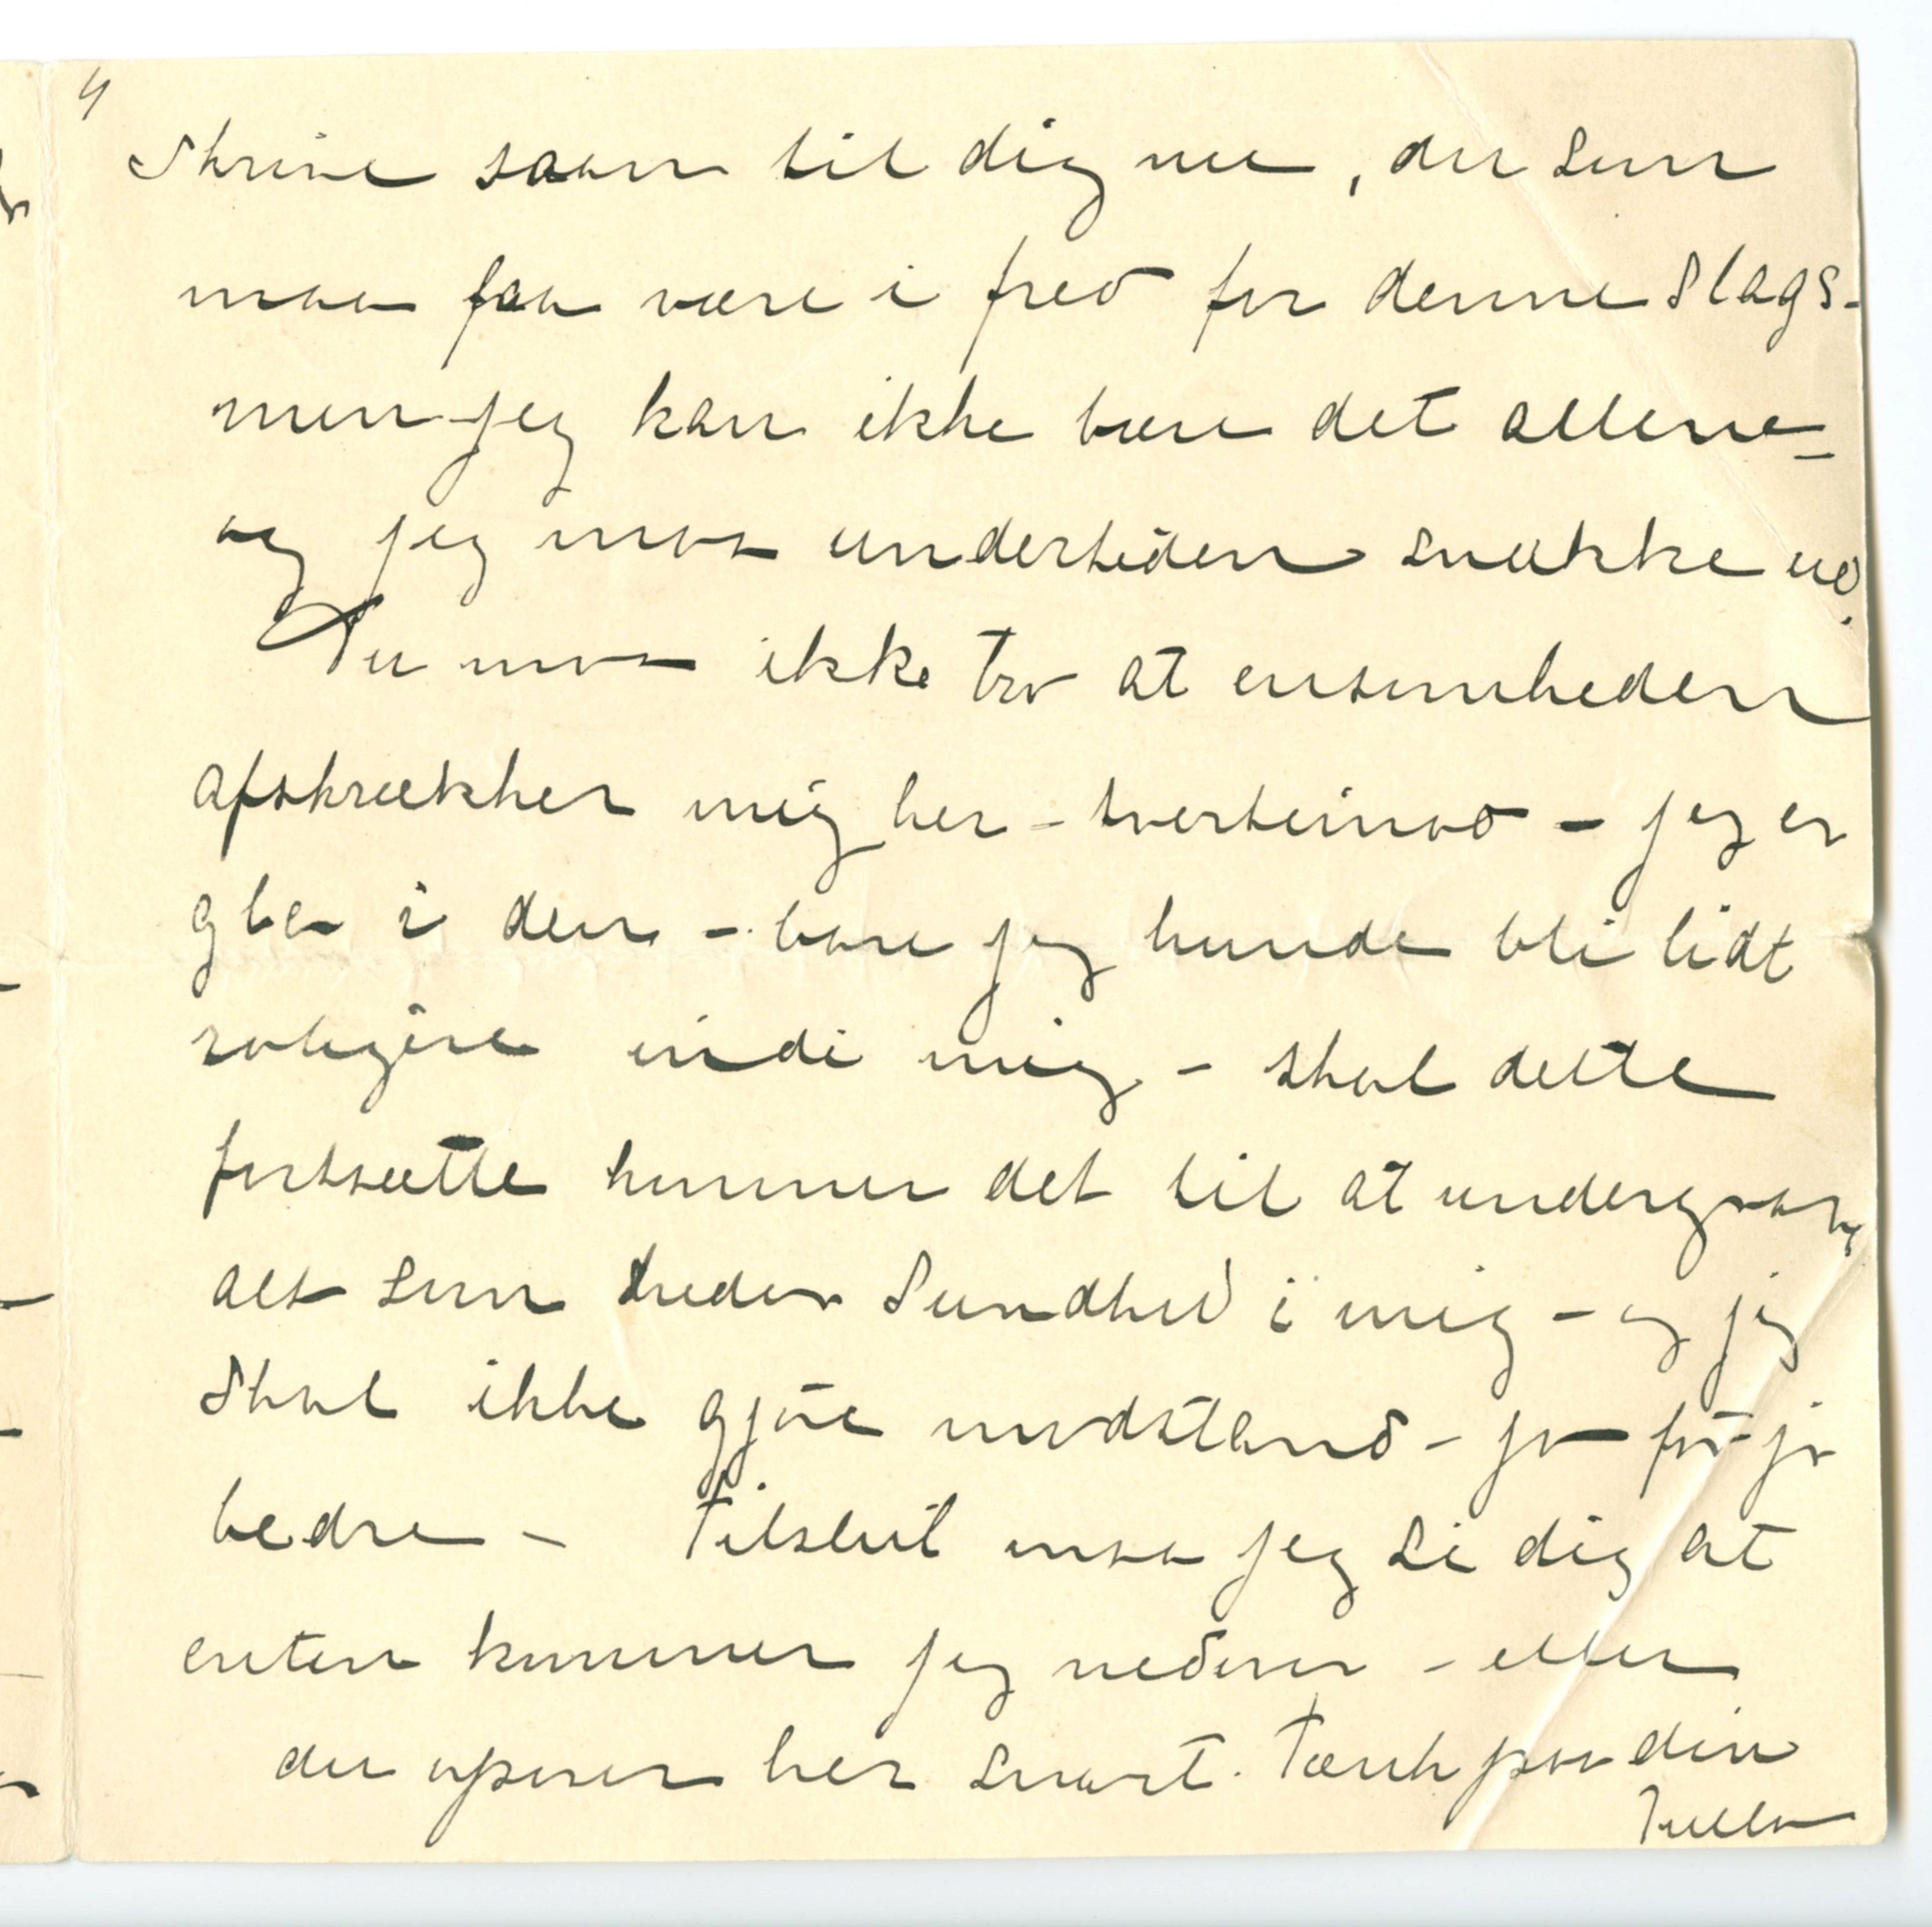 4
Skrive saan til dig nu, du som
maa faa være i fred for denne Slags-
men jeg kan ikke bære det allene –
og jeg maa undertiden snakke ud.
Du maa ikke tro at ensomheden
afskrækker mig her – tvertimod – jeg er
gla i den – bare jeg kunde bli lidt
roligere indi mig – skal dette
fortsætte kommer det til at undergrave
alt som heder Sundhed i mig – og jeg
Skal ikke gjøre modstand – jo før jo
bedre – Tilslut maa jeg si dig at
enten kommer jeg nedover – eller
du opover her snart. Tænk paa din
Tulla